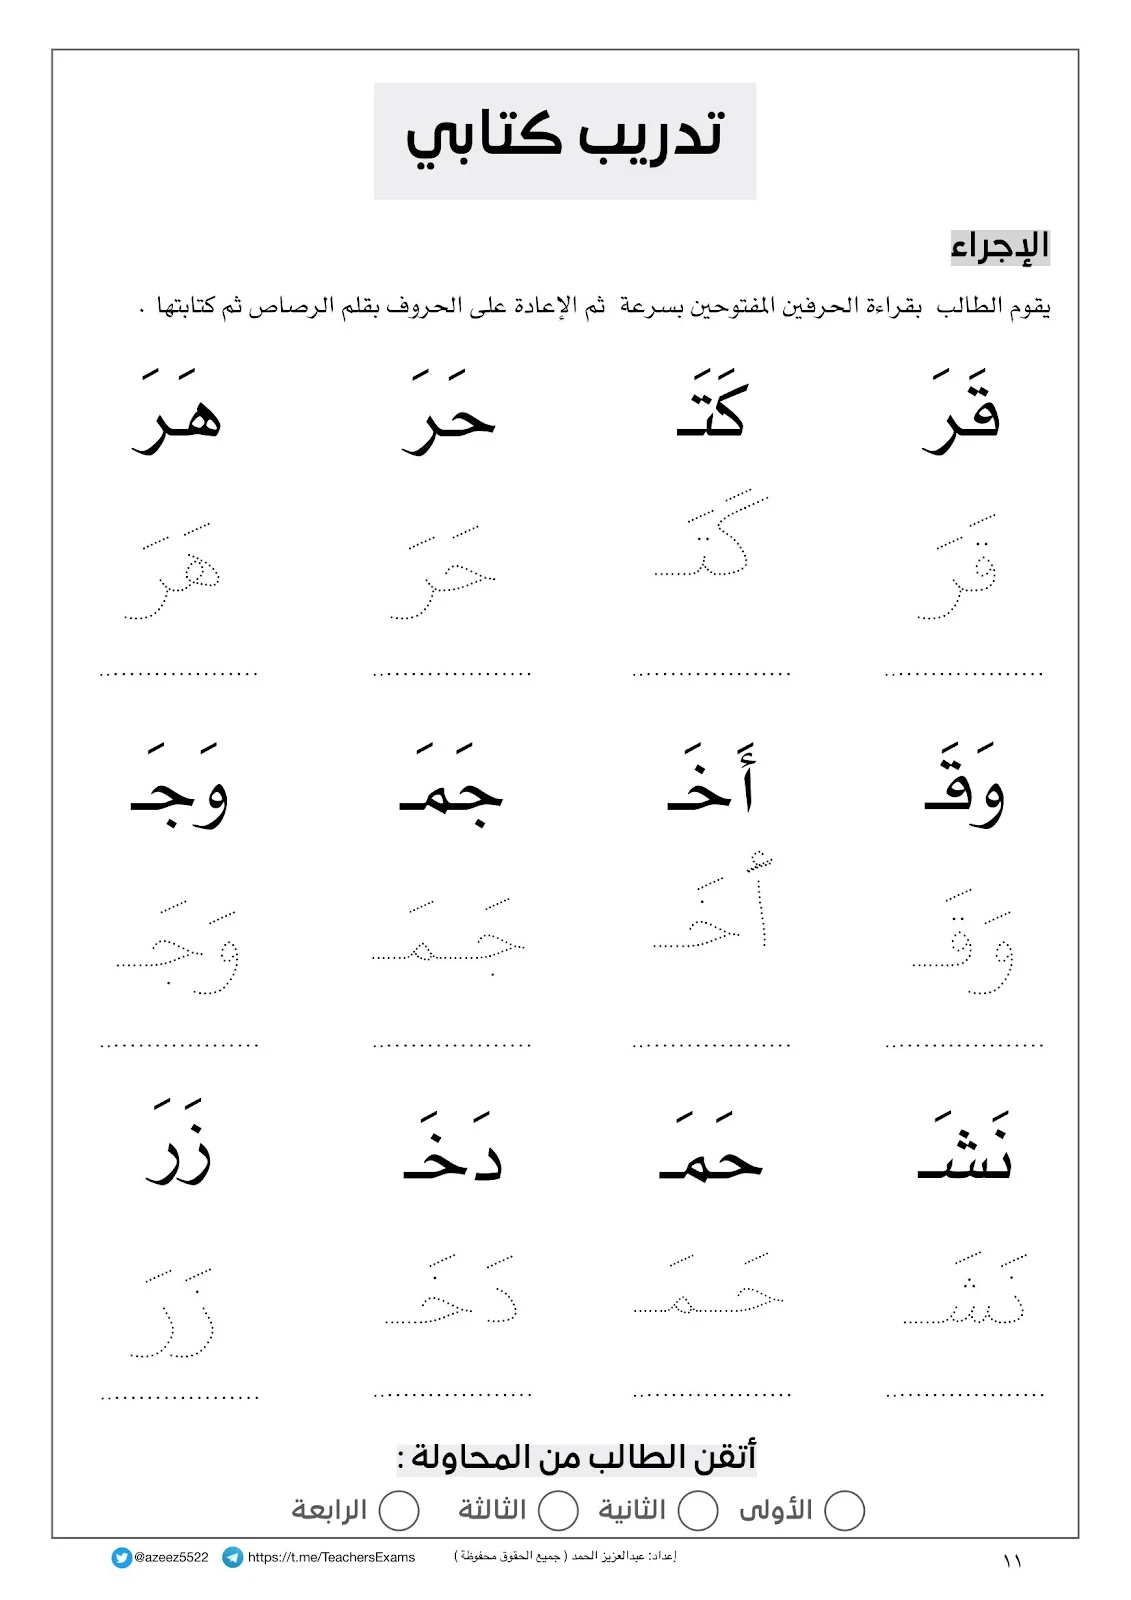 تدريب كتابي
الإجراء
يقوم الطالب بقراءة الحرفين المفتوحين بسرعة ثم الإعادة على الحروف بقلم الرصاص ثم كتابتها .
قَرَ كَتَـ حَرَ هَرَ
قَرَ كَتَـ حَرَ هَرَ
وَقَـ أَخَـ جَمَـ وَجَـ
وَقَـ أَخَـ جَمَـ وَجَـ
نَشَـ حَمَـ دَخَـ زَرَ
نَشَـ حَمَـ دَخَـ زَرَ
أتقن الطالب من المحاولة :
الأولى الثانية الثالثة الرابعة
١١ إعداد: عبدالعزيز الحمد ( جميع الحقوق محفوظة ) https://t.me/TeachersExams @azeez5522